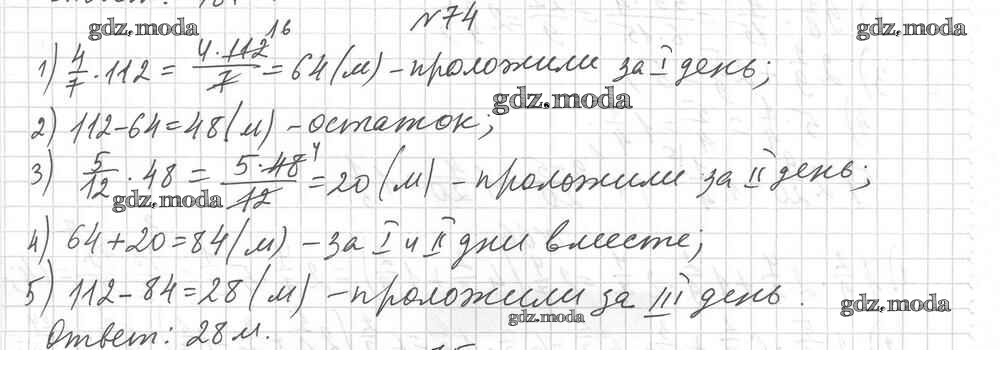 №74
gdz.moda
gdz.moda
1) 4/7 · 112 = 4·112 16/7 = 64 (м) – проложили за I день;
gdz.moda
2) 112 – 64 = 48 (м) – остаток;
3) 5/12 · 48 = 5·48 4/12 = 20 (м) – проложили за II день;
gdz.moda
4) 64 + 20 = 84 (м) – за I и II дни вместе;
5) 112 – 84 = 28 (м) – проложили за III день.
gdz.moda
gdz.moda
Ответ: 28 м.